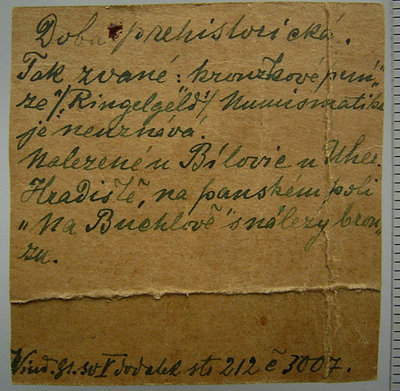 Doba prehistorická.
Tak zvané: kroužkové pení„
ze"/Ringelgeld"/ Numismatika
je neuznává.
Nalezené u Bílovic u Uher.
Hradiště, na panském poli
„Na Buchlově" s nálezy bron„
zu.
Wind. Gr. sv V dodatek str 212 č 3007.